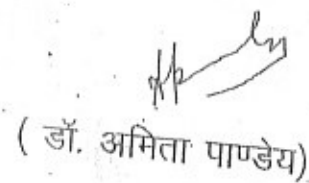 ( डॉ. अमिता पाण्डेय)